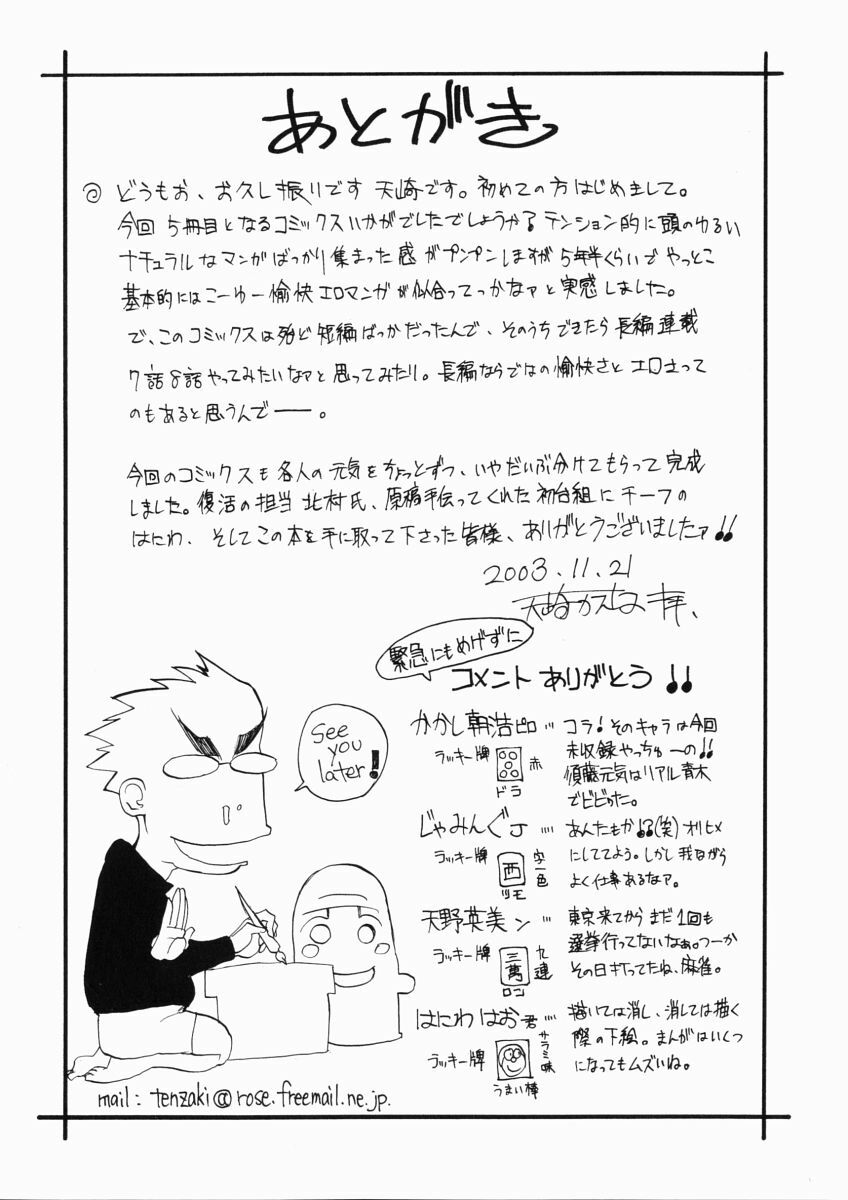 あとがき
どうもお、お久し振りです 天崎です。初めての方はじめまして。
今回 5冊目となるコミックスいかがでしたでしょうか？テンション的に頭のゆるい
ナチュラルなマンガばっかり集まった感がプンプンしますが5年半くらいでやっとこ
基本的にはこーゆー愉快エロマンガが似合ってっかなァと実感しました。
で、このコミックスは殆ど短編ばっかだったんで、そのうちできたら長編連載
7話8話やってみたいなァと思ってみたり。長編ならではの愉快さとエロさって
のもあると思うんでー。
今回のコミックスも各人の元気をちょっとずつ、いやだいぶ分けてもらって完成
しました。復活の担当 北村氏、原稿手伝ってくれた初台組にチーフの
はにわ、そしてこの本を手に取って下さった皆様、ありがとうございましたァ!!
2003.11.21
緊急にもめげずに
コメント ありがとう!!
See
you
later!
かかし朝浩ピロ…
ラッキー牌
赤
ドラ
コラ！そのキャラは今回
未収録やっちゅーの!!
須藤元気はリアル青木
でビビった。
じゃみんぐJ…
ラッキー牌
西
字一色
ツモ
あんたもか!?(笑)オリヒメ
にしててよう。しかし我ながら
よく仕事あるなァ。
天野英美ン…
ラッキー牌
三萬
九連
ロン
東京来てからまだ1回も
選挙行ってないなぁ。つーか
その日打ってたね、麻雀。
はにわはお君…
ラッキー牌
サラミ味
うまい棒
描いては消し、消しては描く
際の下絵。まんがはいくつ
になってもムズいね。
mail: tenzaki@rose.freemail.ne.jp.